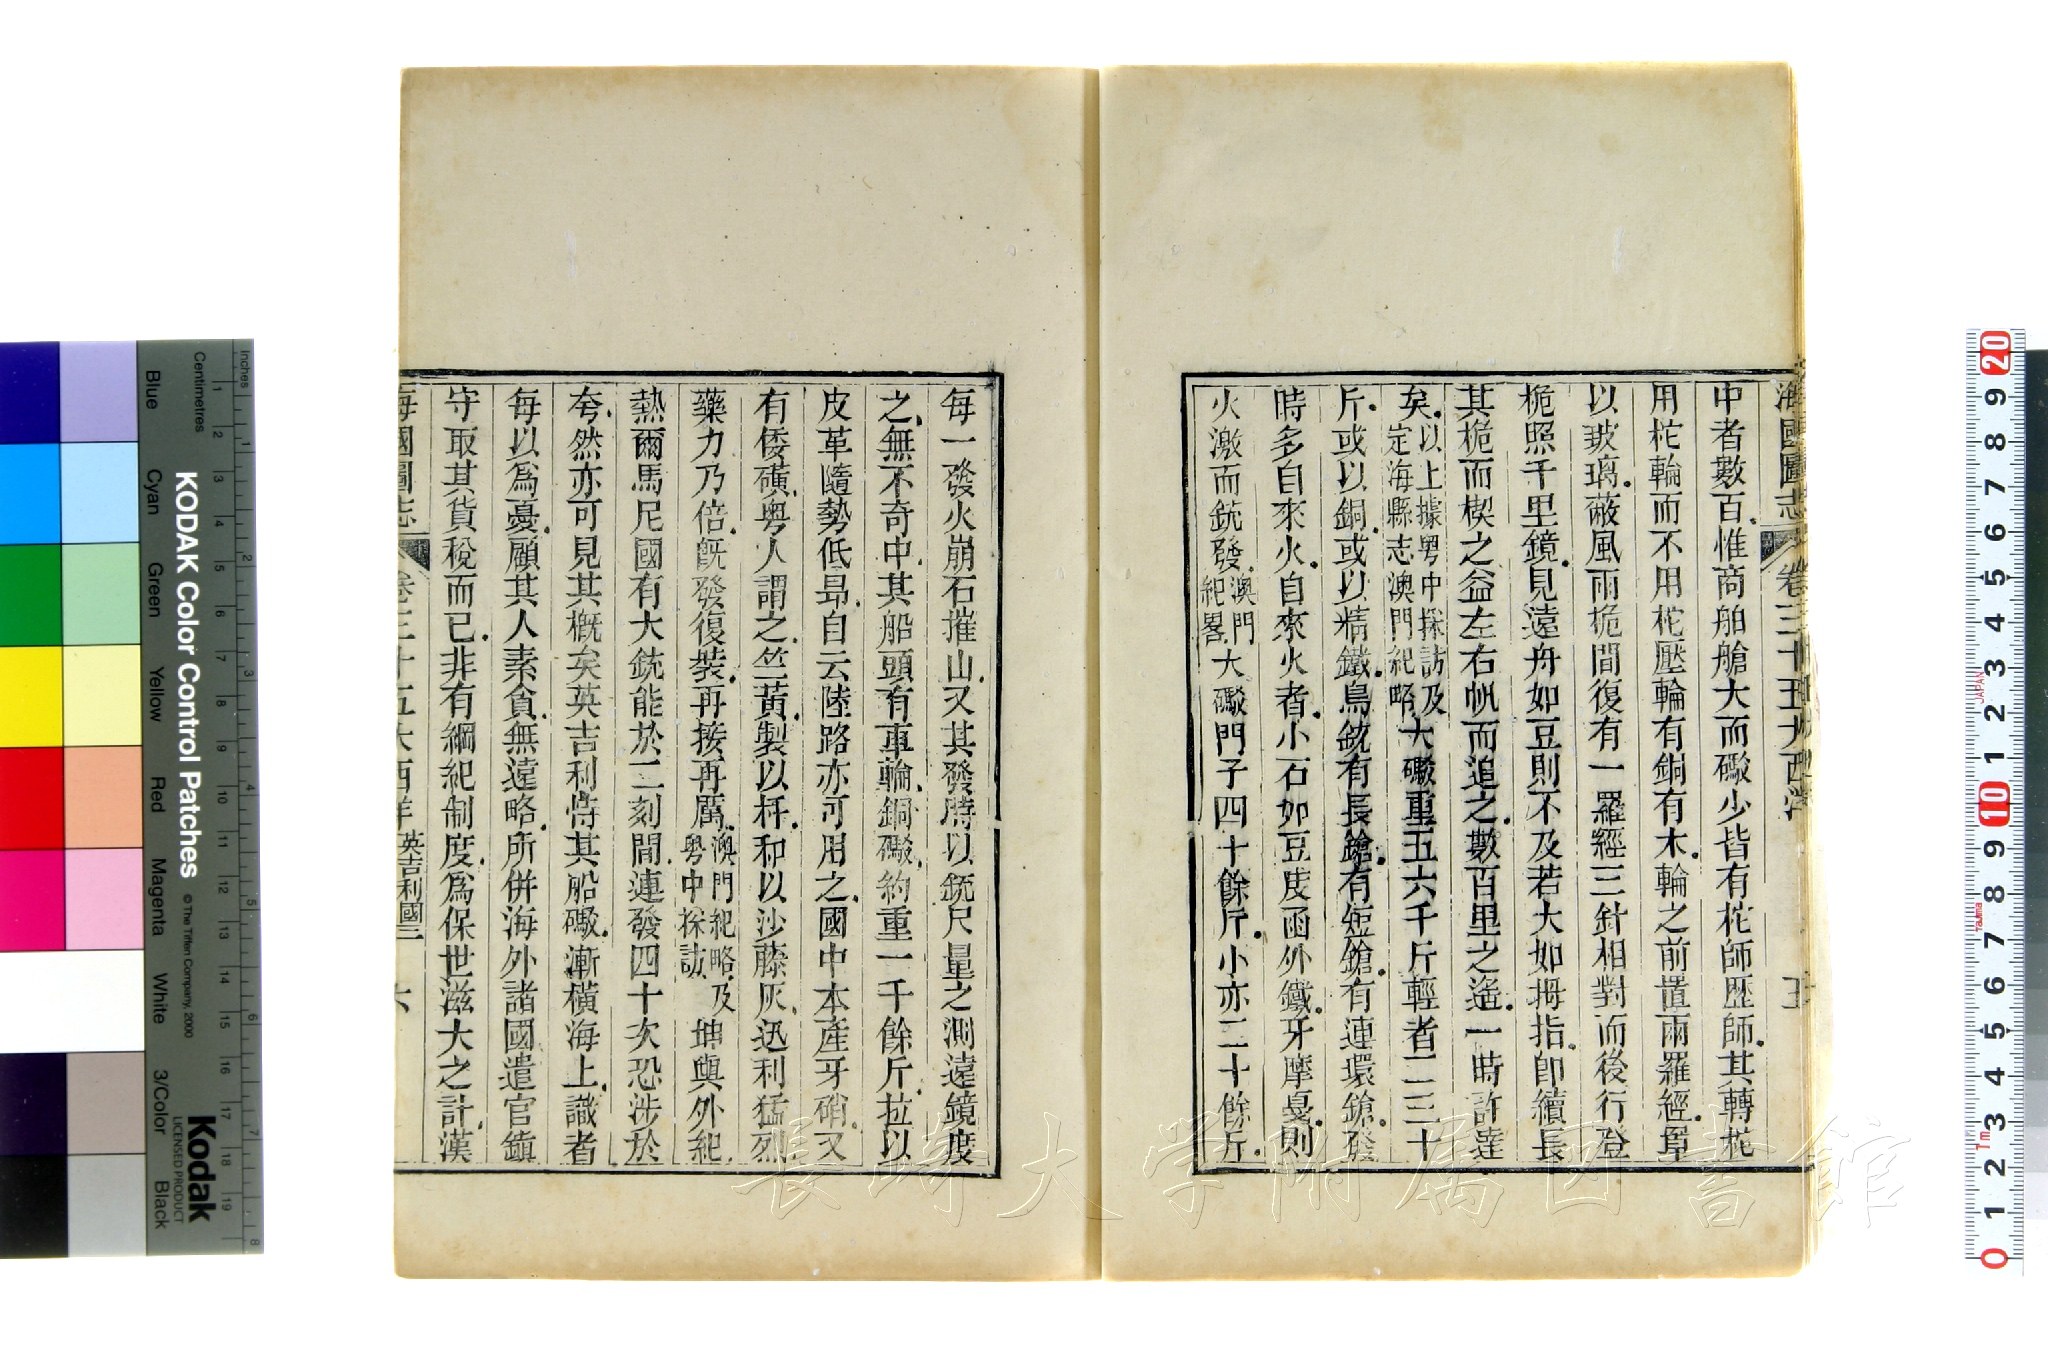 海國圖志 卷三十五大西洋 五
中者數百惟商舶艙大而礮少皆有柁師歷師其轉柁
用柁輪而不用柁壓輪有銅有木輪之前置兩羅經罩
以玻璃蔽風雨桅間復有一羅經三針相對而後行登
桅照千里鏡見遠舟如豆則不及若大如拇指即續長
其桅而楔之益左右帆而追之數百里之遙一時許達
矣以上據粤中採訪及定海縣志澳門紀略大礮重五六千斤輕者二三十
斤或以銅或以精鐵鳥銃有長鎗有短鎗有連環鎗發
時多自來火自來火者小石如豆度函外鐵牙摩戛則
火激而銃發澳門紀畧大礮門子四十餘斤小亦二十餘斤
每一發火崩石摧山又其發時以銃尺量之測遠鏡度
之無不奇中其船頭有車輪銅礮約重一千餘斤拉以
皮革隨勢低昂自云陸路亦可用之國中本產牙硝又
有倭磺粤人謂之竺黃製以杵和以沙藤灰迅利猛烈
藥力乃倍旣發復裝再接再厲澳門紀略及粤中採訪坤輿外紀
熱爾馬尼國有大銃能於二刻間連發四十次恐涉於
夸然亦可見其概矣英吉利恃其船礮漸橫海上識者
每以爲憂顧其人素貪無遠略所併海外諸國遣官鎮
守取其貨稅而已非有綱紀制度爲保世滋大之計漢
海國圖志 卷三十五大西洋 英吉利國三 六
KODAK Color Control Patches
© The Tiffen Company, 2000
Kodak
LICENSED PRODUCT
Inches
Centimetres
Blue
Cyan
Green
Yellow
Red
Magenta
White
3/Color
Black
長崎大学附属図書館
JAPAN
Tajima